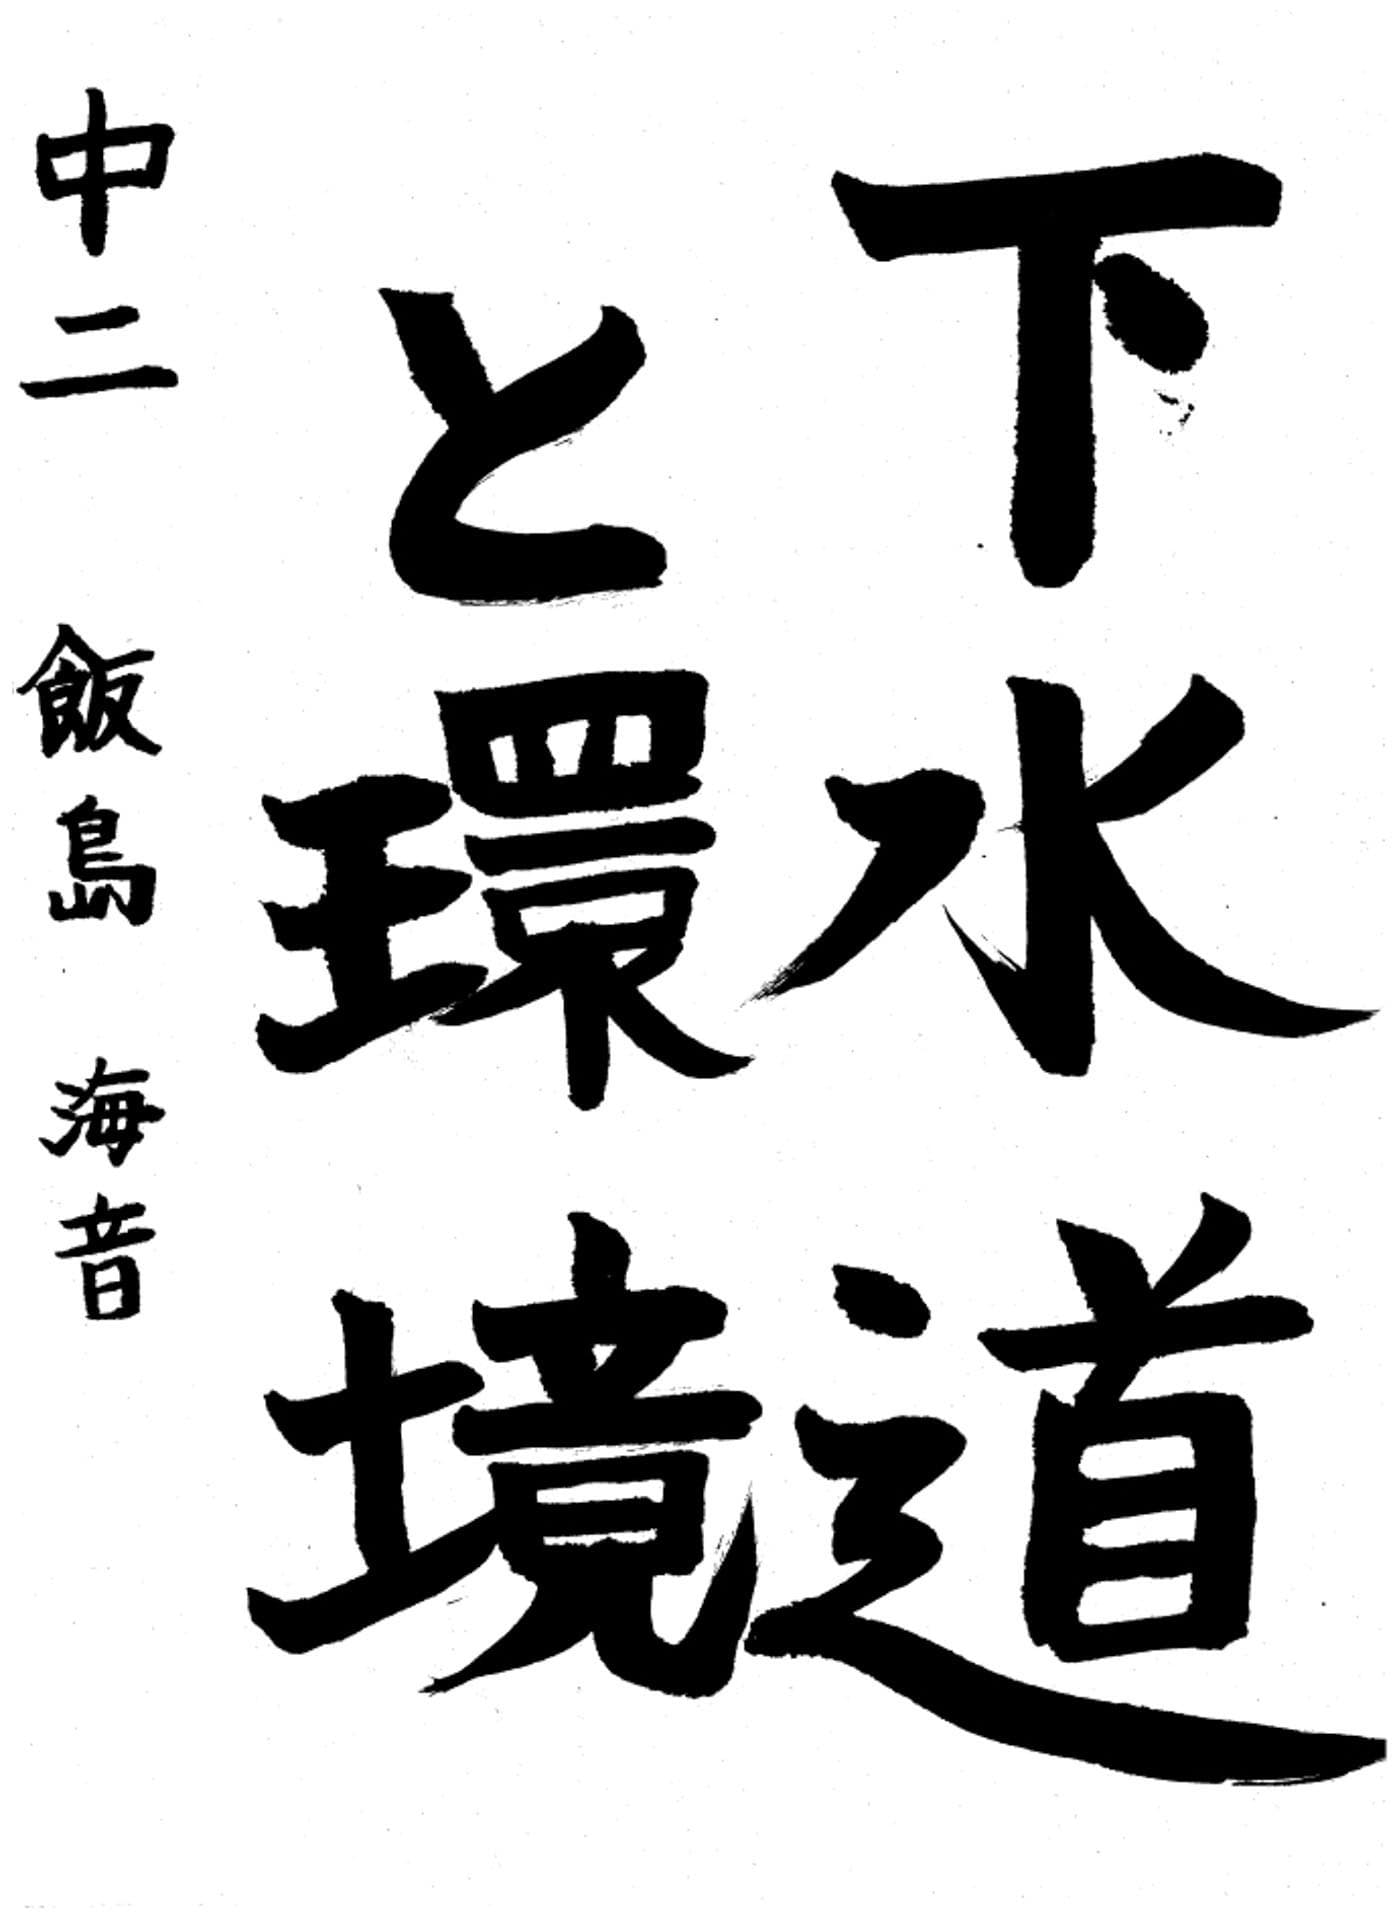 下水道
と環境
中二 飯島 海音